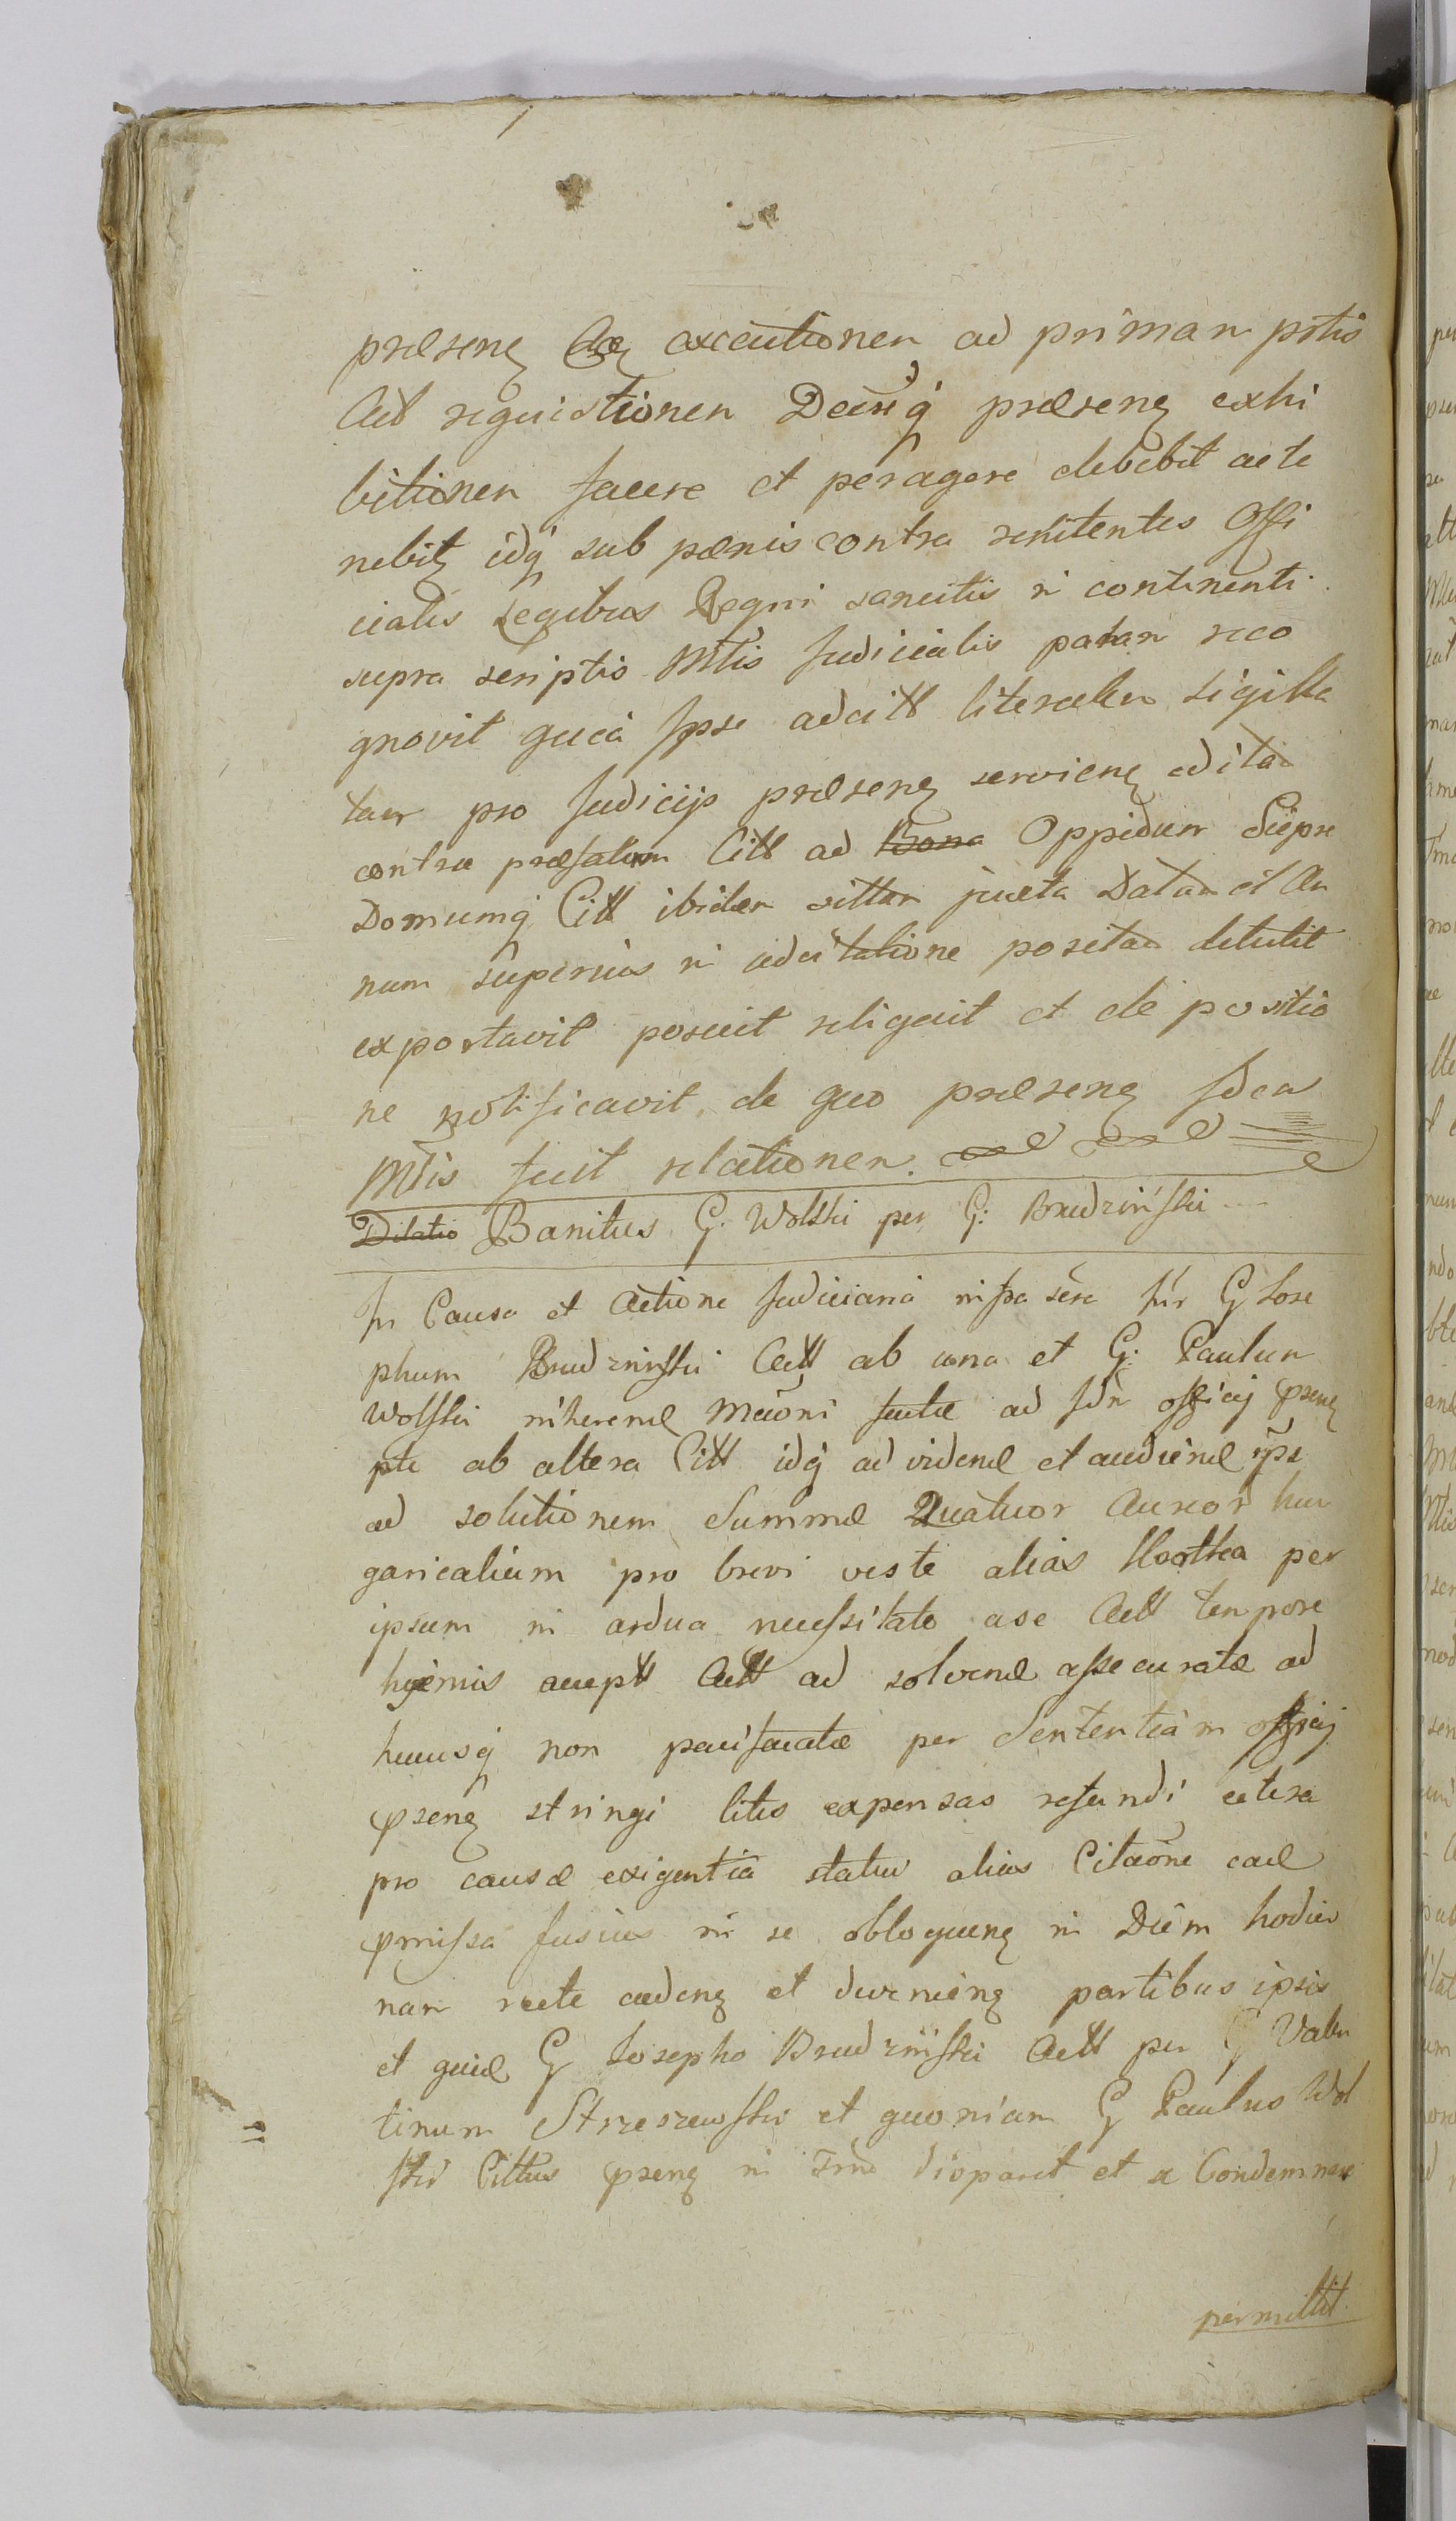 præsenę executionem ad primam ptis
Act requistionem Decrīq́ præsenę exhi
bitionem facere et peragere debebit aete
nebitę idq́ sub pœnis contra renitentes Offi
cialis Legibus Regni sancitis in continenti
supra scriptio Mtis Judicialis palam reco
gnovit quia Ipse adcitt literalem sigilla
tam pro Judicijs præsenę servienę editam
contra præfatum Citt ad Bona Oppidum Siepre
Domumq́ Citt ibidem sittam juxta Datam et An
num superius in adcitatione positam detulit
exportavit posuit reliquit et de positio
ne notificavit, de quo præsenę Idem
Mtis fecit relationem.
Dilatio Banitus G. Wolski per G: Brudziński
In Causa et Actione Judiciaria infra scra Intr G Jose
phum Brudzinski Act ab una et G: Paulum
Wolski inherend Mcioni factæ ad Idm officij psenę
pte ab altera Citt idq́ ad vidend et audiend ips
ad solutionem Summæ Quatuor Aureor hun
garicalium pro brevi veste alias Kortka per
ipsum in ardua necessitate a se Actt tempore
hyemis accept Actt ad solvend assecuratæ ad
hucusq́ non pacificatæ per Sententiam officij
psenę stringi litis expensas refundi cetera
pro causæ exigentia statui alias Citaōne ead
pmissa fusius in se obloquenę in Diem hodier
nam recte cadenę et dvenienę partibus ipsis
et quid G Josepho Brudziński Actt per G Valen
tinum Strzeszewski et quoniam G Paulus Wol
ski Cittus psenę in Tmo dioparet et se Condemnare
permittit.